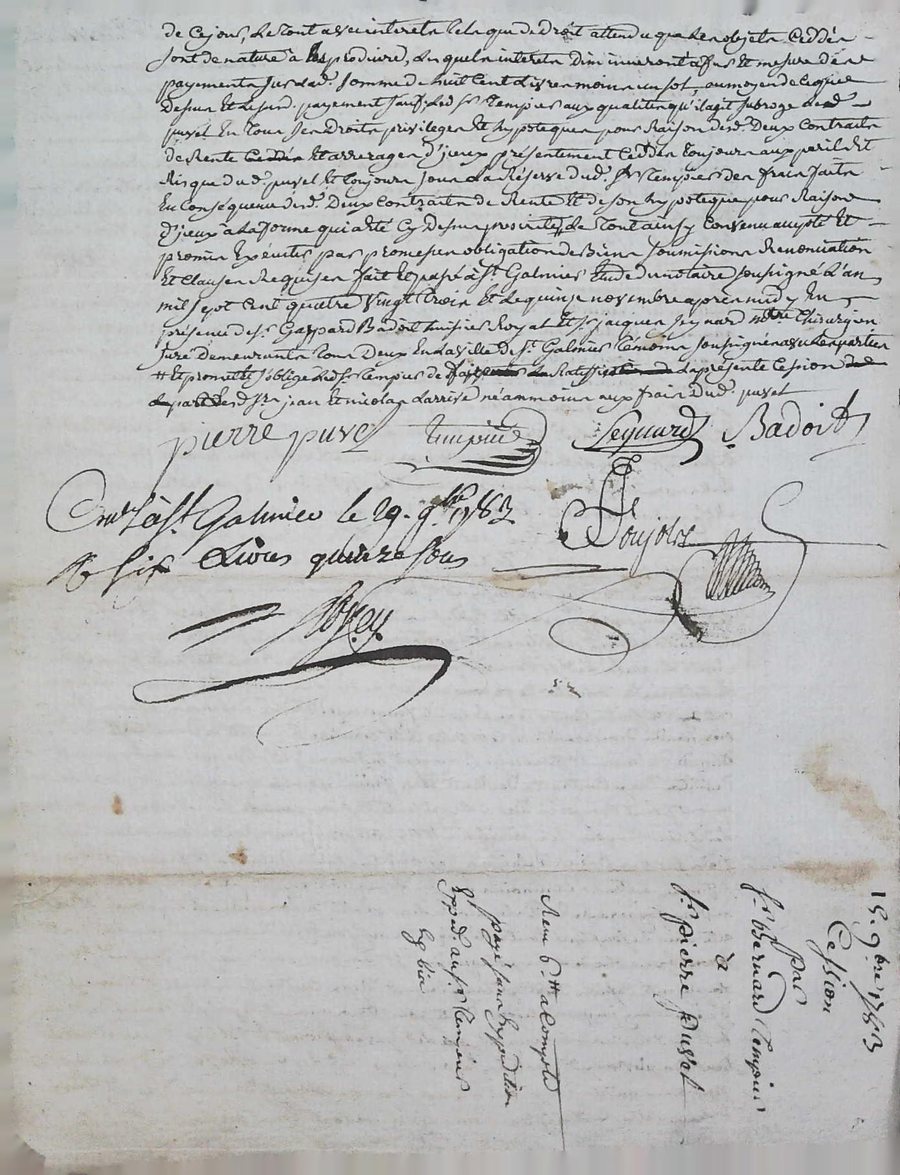 de ce jour, le tout avec interets tels que de droit attendu que les objets ceddés
sont de nature à en produire, lesquels interets diminueront à fur et mesure des
payements sur lad. somme de huit cent livres moins un sol, au moyen de ce que
dessus et desd. payement sauf led sr. Tempier aux qualités qu'il agit subroge led
puvel en tous ses droits privileges et hypoteques pour raison desd. deux contrats
de rente et arrerages d'iceux présentement ceddés toujours aux perils et
risque dud. puvel et toujours sous la réserve dud. sr. Tempier des frais faits
en conséquence desd. deux contrats de rente et de son hypoteque pour raison
d'iceux à la forme qui a été cy dessus # le tout ainsy convenu accepté et
promis exécuter par promesses obligation de biens soumissions renonciation
et clauses requises fait et passé à st. Galmier étude du notaire soussigné l'an
mil sept cent quatre vingt trois et le quinze novembre après midy en
présence de sr. Gaspard Badoit huissier royal et sr. jacques Seynard mtre chirurgien
juré demeurants tous deux en la ville de st. Galmier témoins soussignés avec les parties
# et promet et s'oblige led sr. Tempier de la présente cession
desd. srs. jean et nicolas Larrive néammoins aux frais dud. puvel
pierre puvel Tempier Seynard Badoit
Conlé à st. Galmier le 29. 9bre 1783
R six Livres quinze sous
Poujolos
15. 9bre 1783
Cession
par
sr. Bernard Tempier
à
sr. pierre puvel
Recu 6tt a Compte
payé sans Expedition
Exped. au sr. Tempier